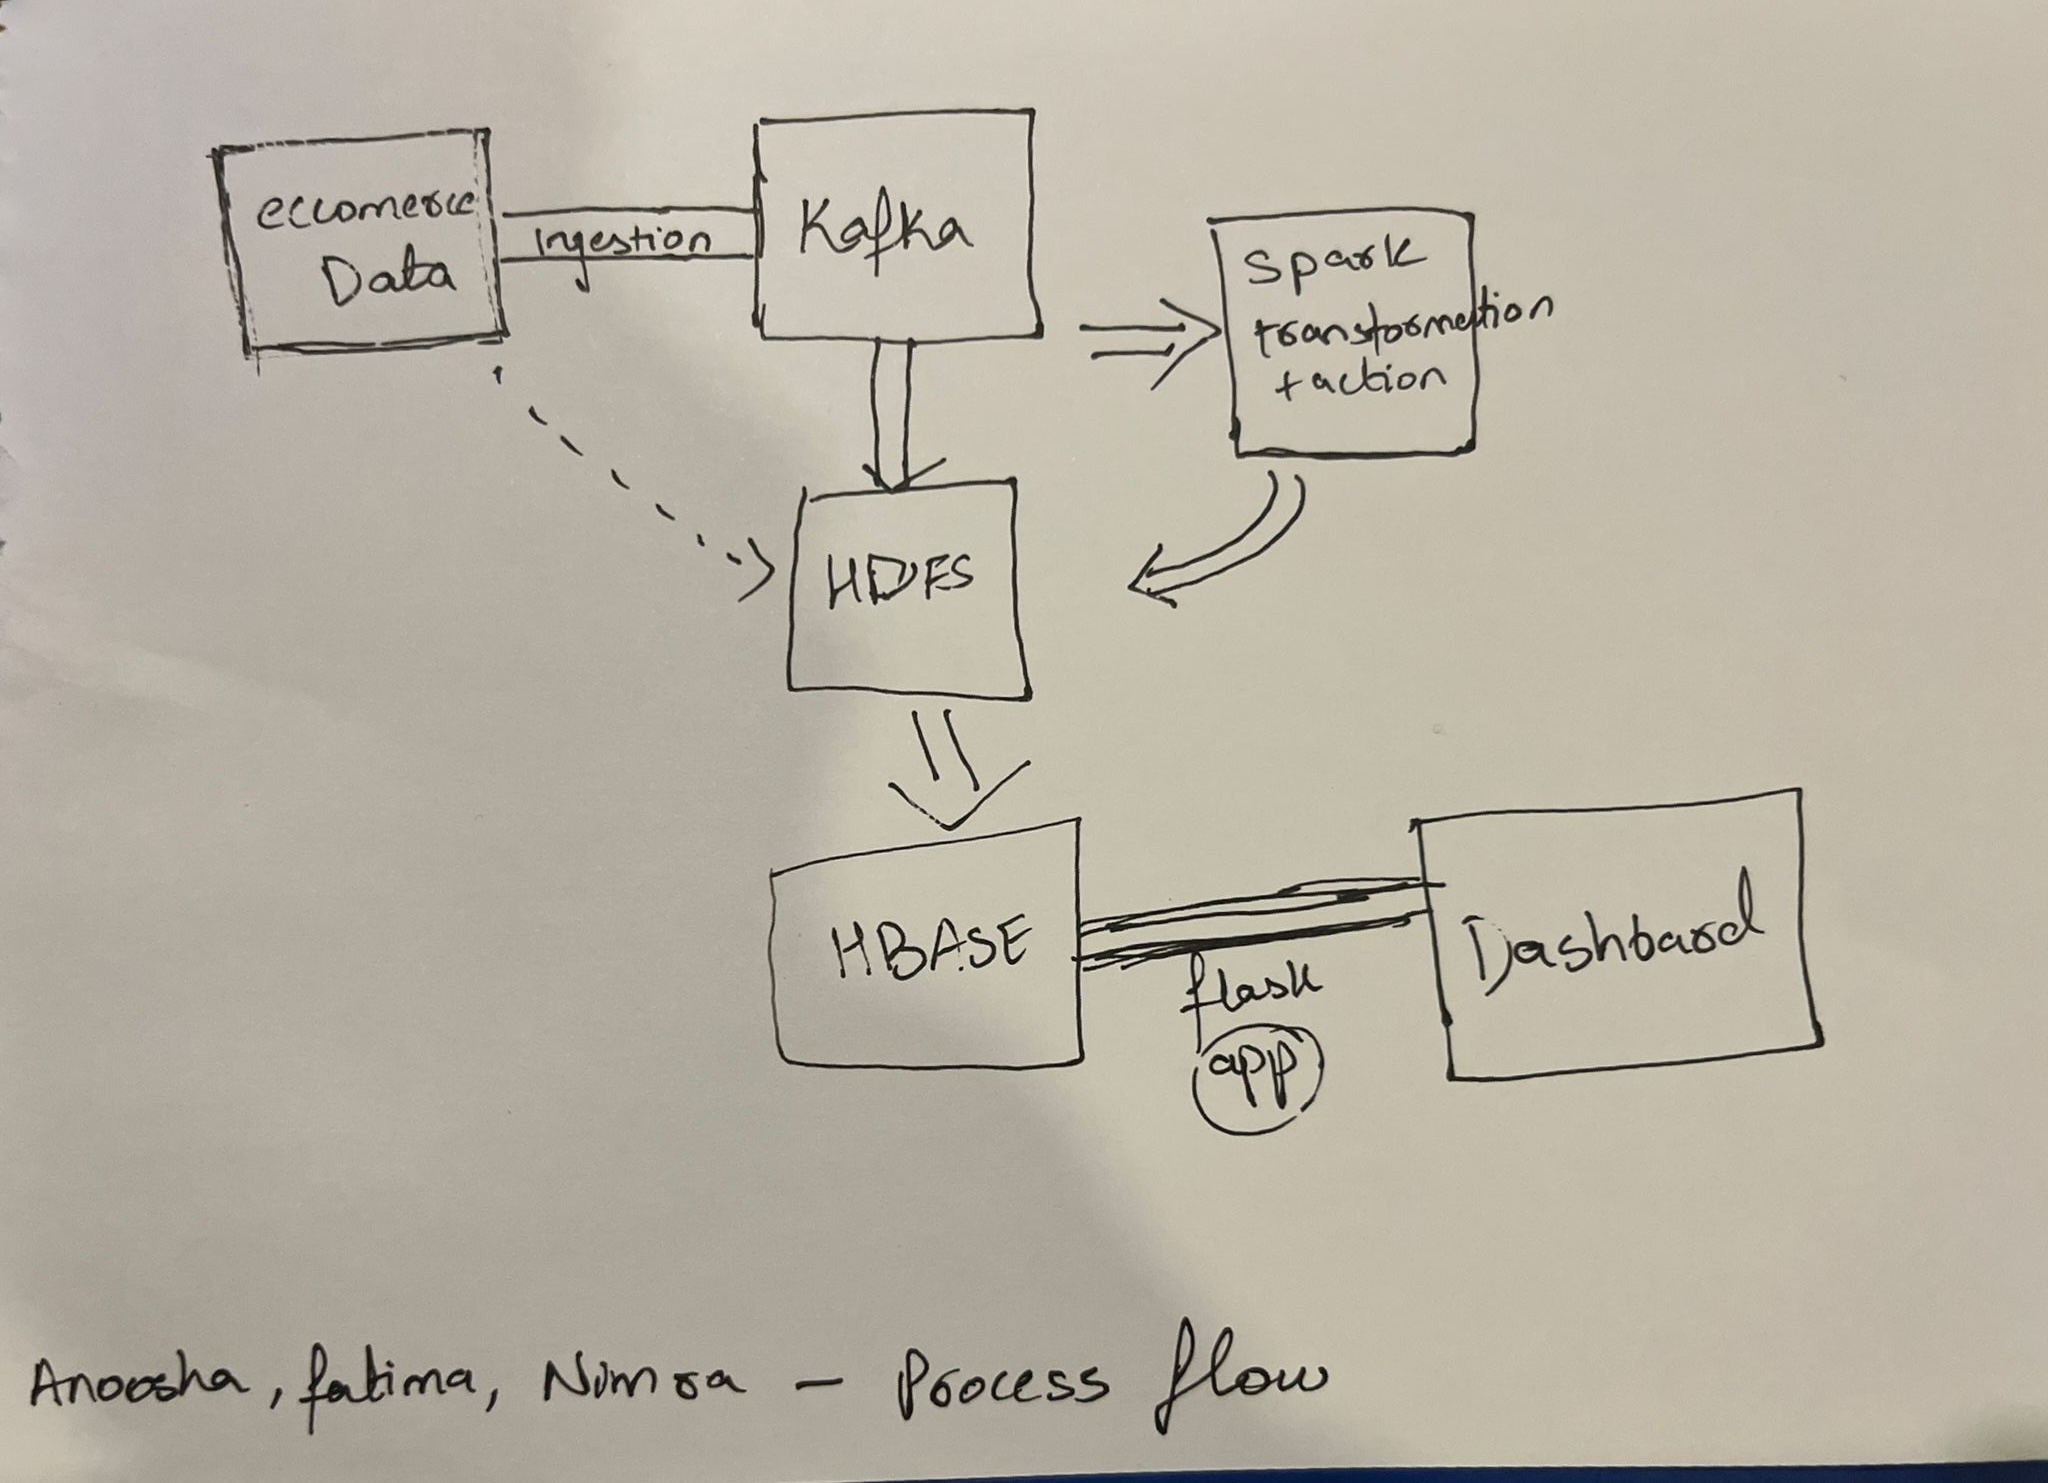 eccomerce
Data
Ingestion
Kafka
Spark
transformation
+ action
HDFS
HBASE
flask
app
Dashboard
Anoosha, fatima, Nimra - Process flow